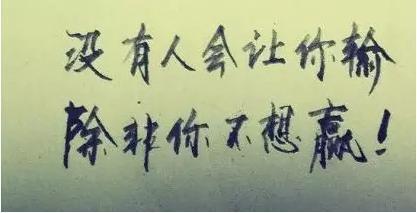 没有人会让你输
除非你不想赢！